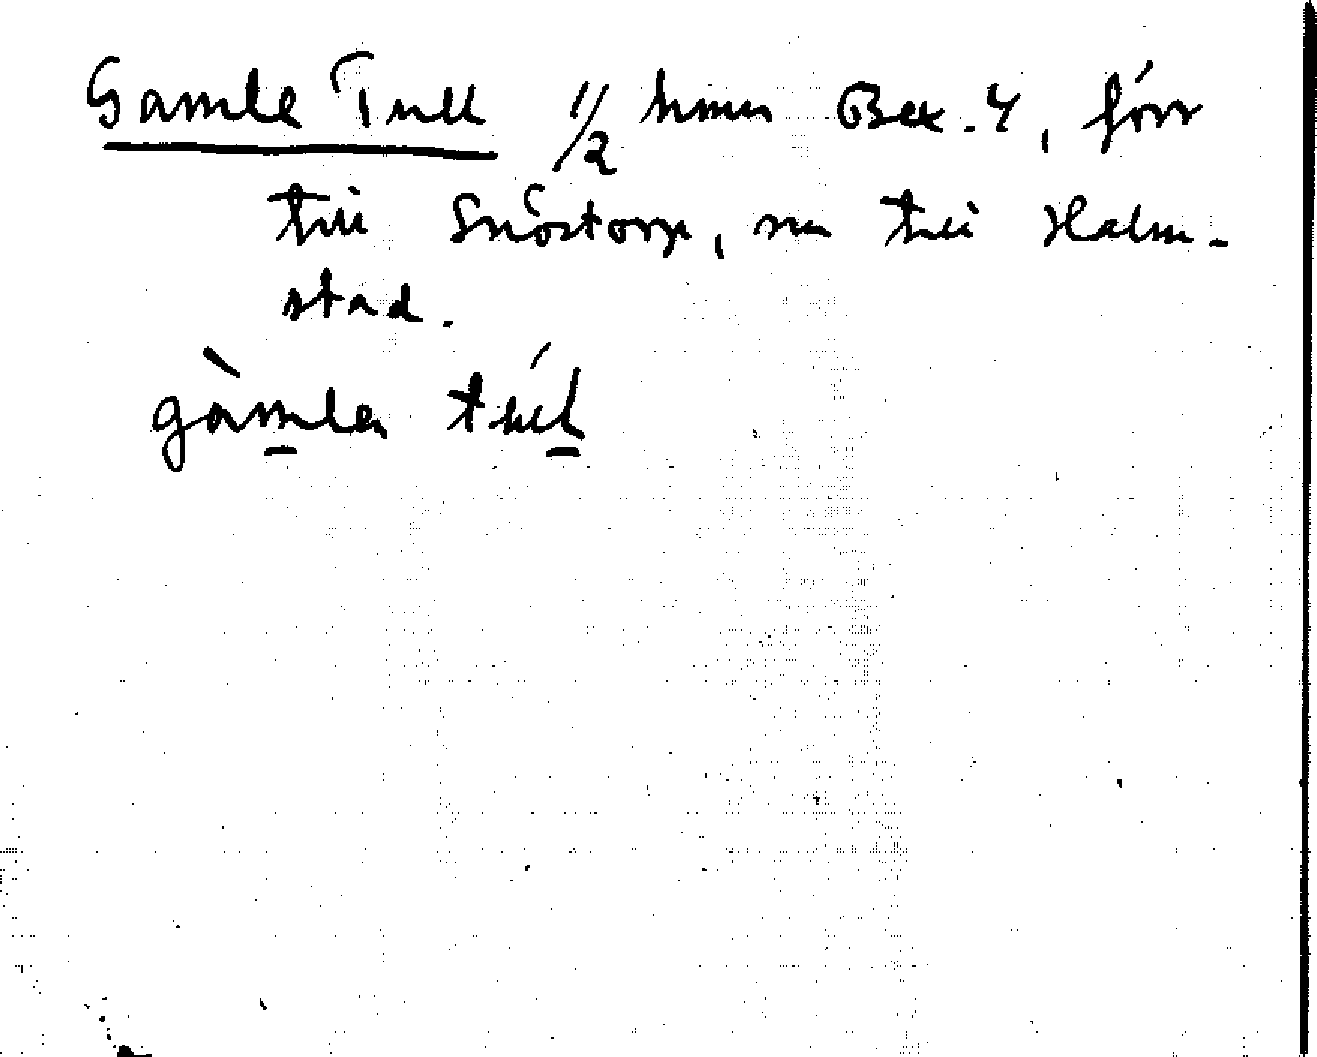 Gamle Tull 1/2 hmn Bex. 4, förr
till Snöstorp, nu till Halm-
stad.
gàmlen túl